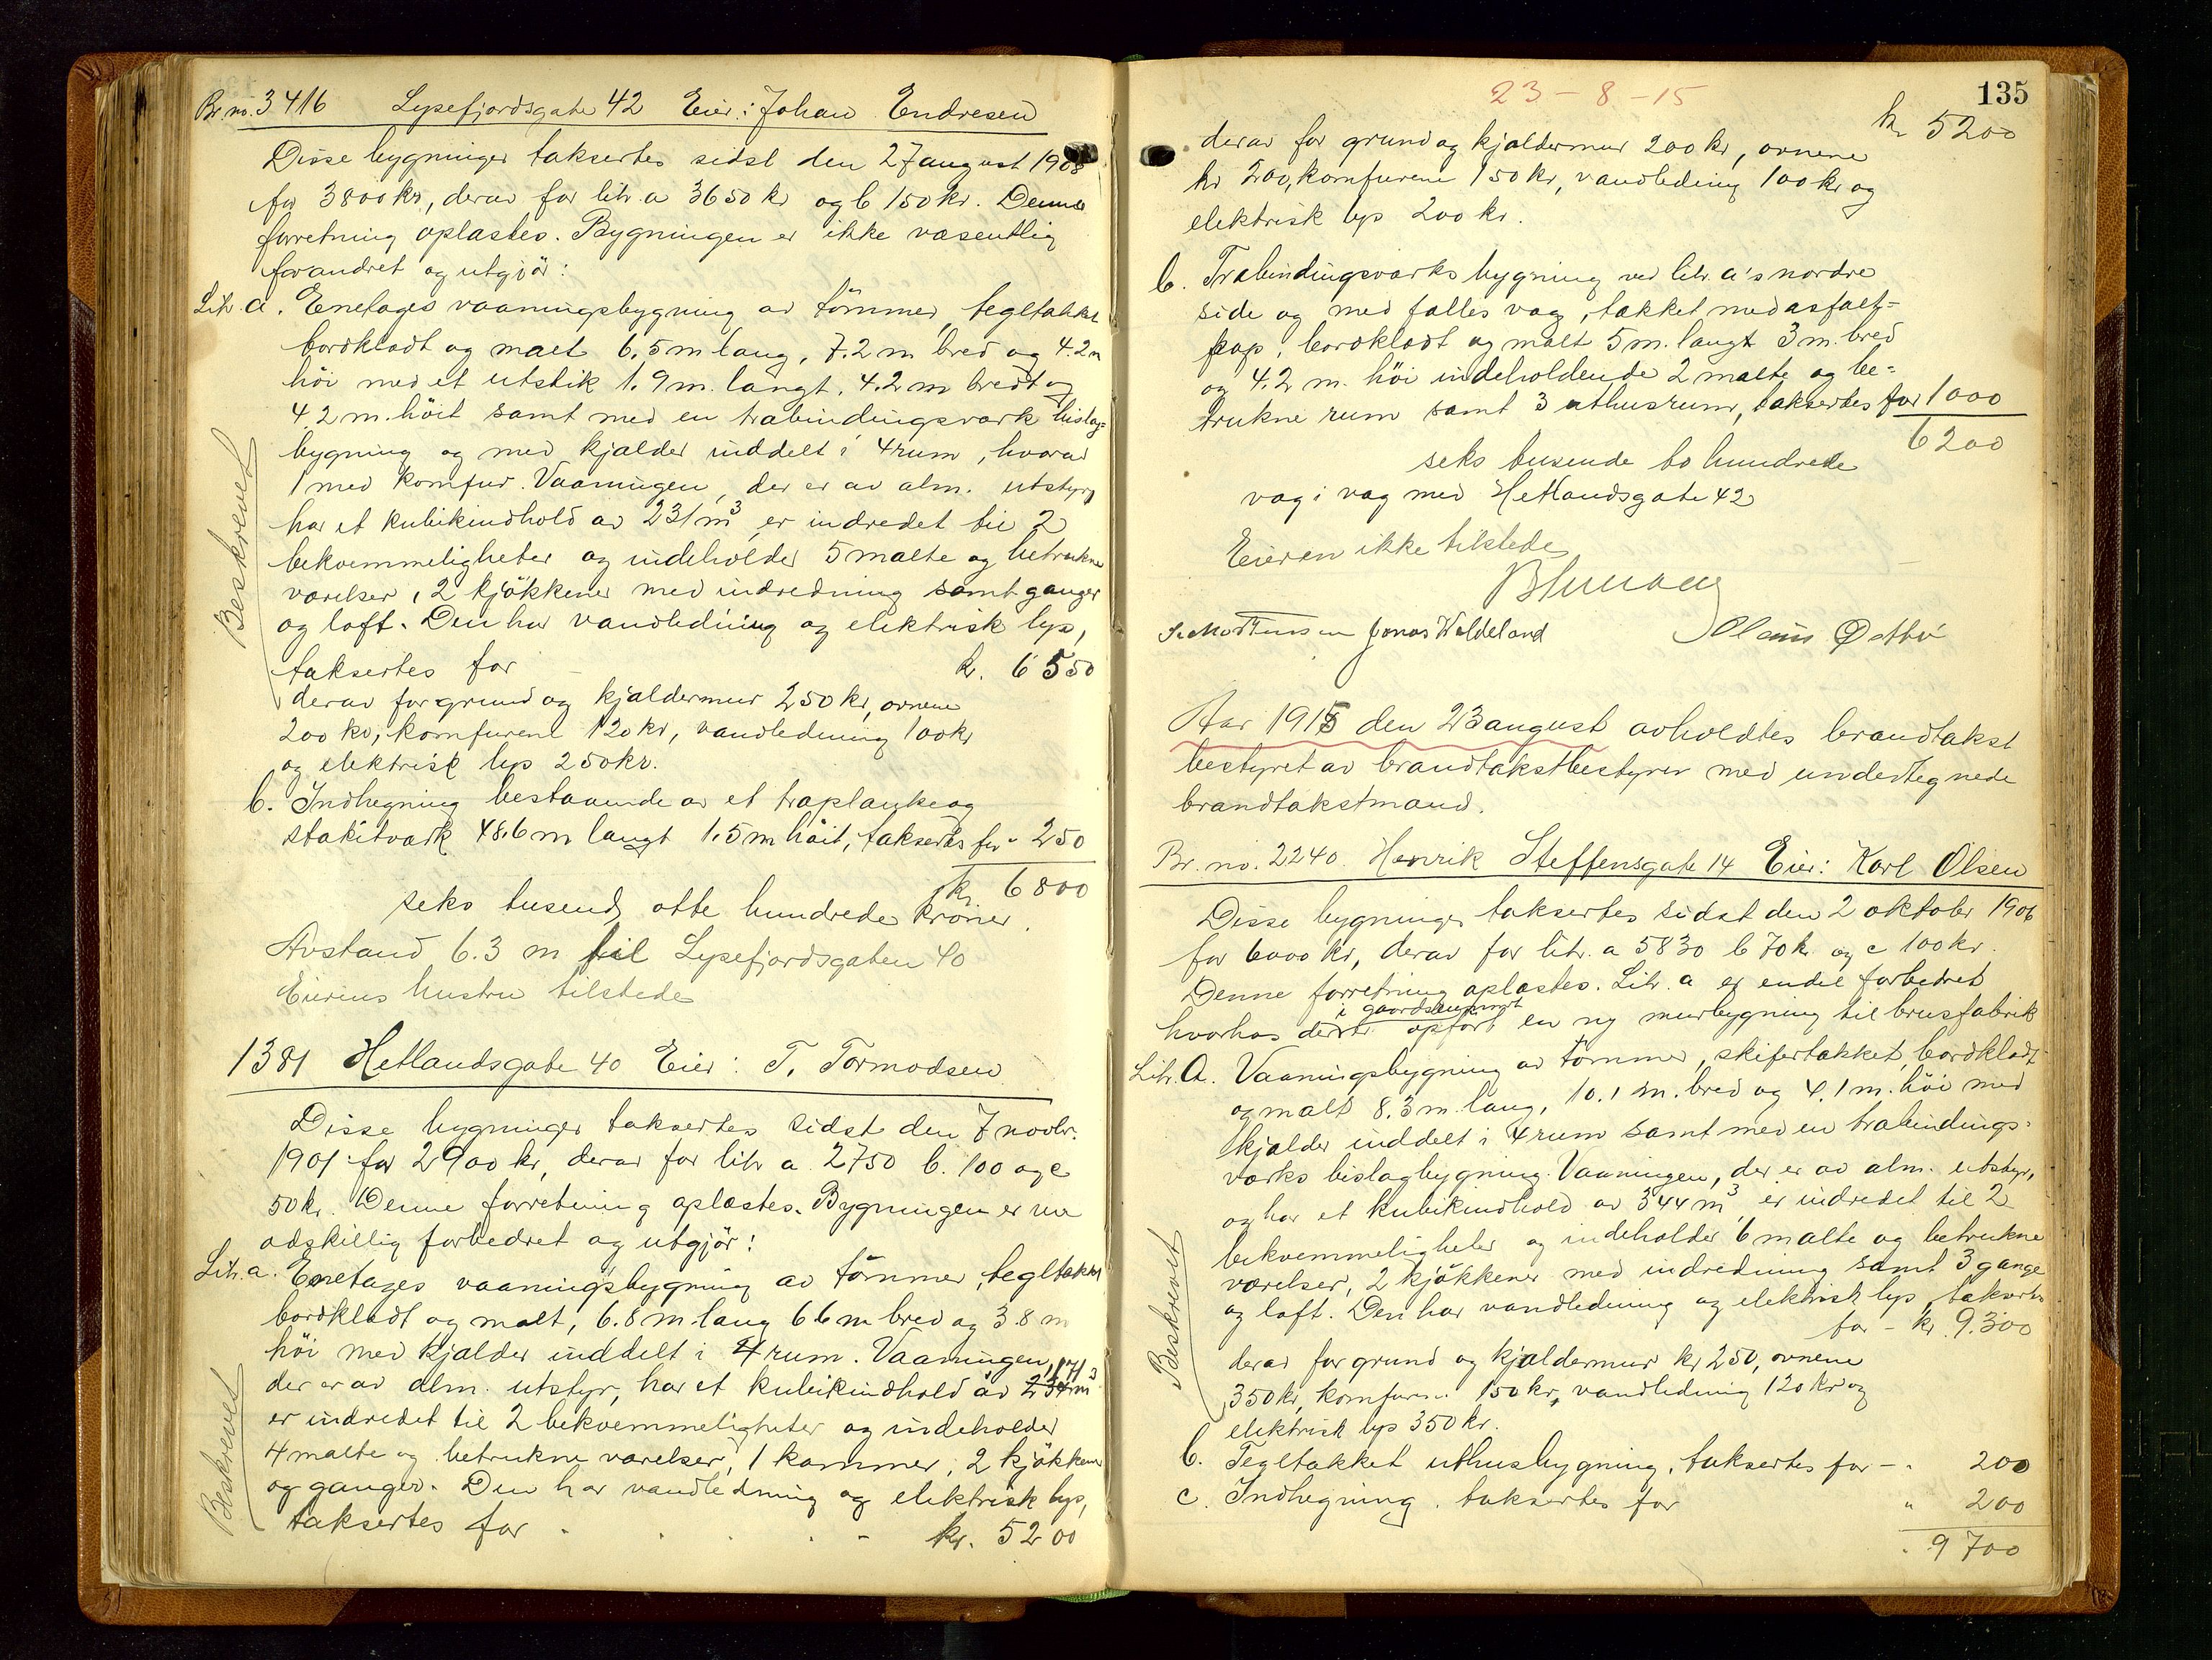 Br. no. 3416 Lysefjordsgate 42 Eier: Johan Endresen
Disse bygninger taksertes sidst den 27 august 1908
for 3800 kr, derav for litr. a 3650 kr og b 150 kr. Denne
forretning oplæstes. Bygningen er ikke væsentlig
forandret og utgjör:
Litr. a. Enetages vaaningsbygning av tömmer, tegltækket
bordklædt og malt 6.5 m lang, 7.2 m bred og 4.2 m
höi med et utstik 1.9 m. langt, 4.2 m bredt og
4 2 m. höit samt med en træbindingsværk bislag-
bygning og med kjælder inddelt i 4 rum, hvorav
1 med komfur. Vaaningen, der er av alm. utstyr,
har et kubikindhold av 231 m³, er indredet til 2
bekvemmeligheter og indeholder 5 malte og betrukne
værelser, 2 kjökkener med indredning samt ganger
og loft. Den har vandledning og elektrisk lys,
taksertes for kr. 6550
Beskrevet
derav for grund og kjældermur 250 kr, ovnene
200 kr, komfurene 120 kr, vandledning 100 kr
og elektrisk lys 250 kr.
b. Indhegning bestaaende av et træplanke og
stakitværk 48.6 m langt 1.5 m höit, taksertes for " 250
kr. 6800
seks tusend, otte hundrede kroner.
Avstand 6.3 m til Lysefjordsgaten 40
Eierens hustru tilstede
1381 Hetlandsgate 40 Eier: T. Tormodsen
Disse bygninger taksertes sidst den 7 novbr.
1901 for 2900 kr, derav for litr a 2750 b. 100 og c
50 kr. Denne forretning oplæstes. Bygningen er nu
adskillig forbedret og utgjör:
Litr. a. Enetages vaaningsbygning av tömmer, tegltækket
bordklædt og malt, 6.8 m lang 6 6 m bred og 3.8 m
höi med kjælder inddelt i 4 rum. Vaaningen,
der er av alm. utstyr, har et kubikindhold av 171 m³
er indredet til 2 bekvemmeligheter og indeholder
4 malte og betrukne værelser, 1 kammer, 2 kjökkener
og ganger. Den har vandledning og elektrisk lys,
taksertes for kr. 5200
Beskrevet
135
23-8-15
kr 5200
derav for grund og kjældermur 200 kr, ovnene
kr 200, komfurene 150 kr, vandledning 100 kr og
elektrisk lys 200 kr.
b. Træbindingsværks bygning ved litr. a's nordre
side og med fælles væg, tækket med asfalt-
pap, bordklædt og malt 5 m. langt 3 m. bred
og 4.2 m. höi indeholdende 2 malte og be-
trukne rum samt 3 uthusrum, taksertes for 1000
6200
seks tusende to hundrede
væg i væg med Hetlandsgate 42
Eieren ikke tilstede
Jonas Waldeland
Olaus Østbö
Aar 1915 den 23 august avholdtes brandtakst
bestyret av brandtakstbestyrer med undertegnede
brandtakstmænd.
Br. no. 2240. Henrik Steffensgate 14 Eier: Karl Olsen
Disse bygninger taksertes sidst den 2 oktobr 1906
for 6000 kr, derav for litr. a 5830 b 70 kr. og c 100 kr.
Denne forretning oplæstes. Litr. a er endel forbedret
i gaardsrummet
hvorhos der er opfört en ny murbygning til brusfabrik
Litr. a. Vaaningsbygning av tömmer, skifertækket, bordklædt
og malt 8.3 m. lang, 10.1 m. bred og 4.1 m. höi med
kjælder inddelt i 4 rum samt med en træbindings-
værks bislagbygning. Vaaningen, der er av alm. utstyr,
og har et kubikindhold av 344 m³, er indredet til 2
bekvemmeligheter og indeholder 6 malte og betrukne
værelser, 2 kjökkener med indredning samt 3 gange
og loft. Den har vandledning og elektrisk lys, taksertes
for - kr. 9.300
Beskrevet
derav for grund og kjældermur kr 250, ovnene
350 kr, komfurene 150 kr, vandledning 120 kr og
elektrisk lys 350 kr.
b. Tegltækket uthusbygning, taksertes for - " 200
c. Indhegning, taksertes for " 200
" 9700